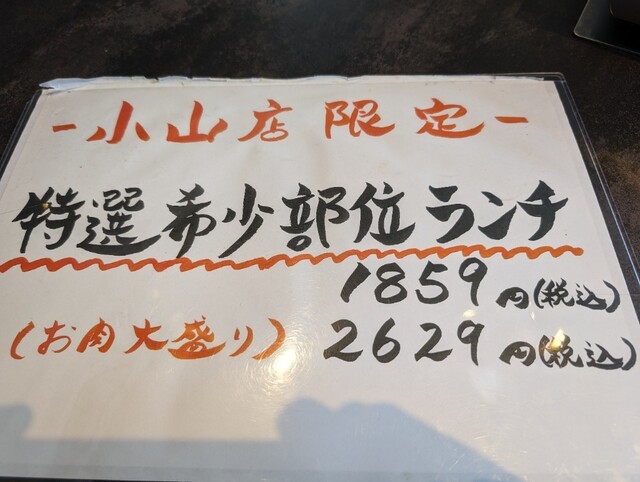 -小山店限定-
特選希少部位ランチ
1859円(税込)
(お肉大盛り) 2629円(税込)